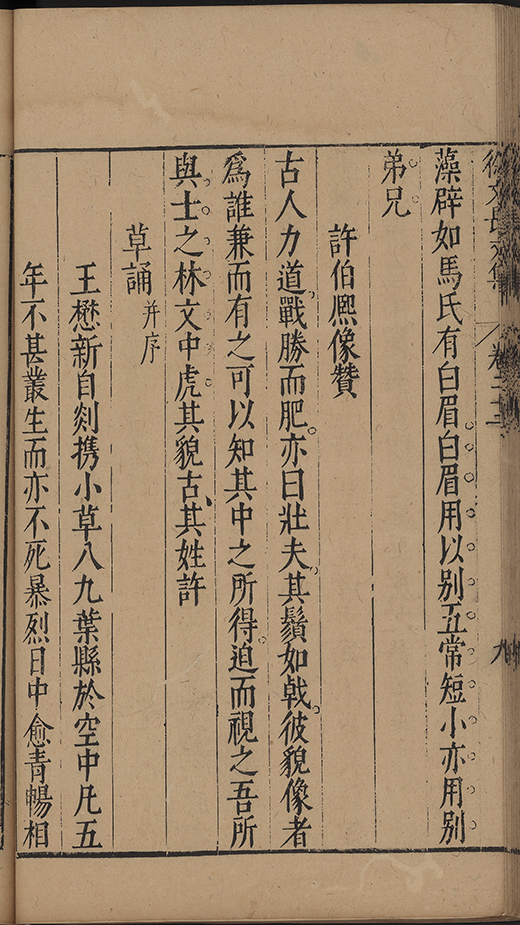 徐文長文集 卷二十二 九
藻辟如馬氏有白眉白眉用以别五常短小亦用别
弟兄
許伯熈像贊
古人力道戰勝而肥亦曰壯夫其鬚如戟彼貌像者
爲誰兼而有之可以知其中之所得迫而視之吾所
與士之林文中虎其貌古其姓許
草誦并序
王懋新自剡携小草八九葉縣於空中凡五
年不甚叢生而亦不死暴烈日中愈青暢相